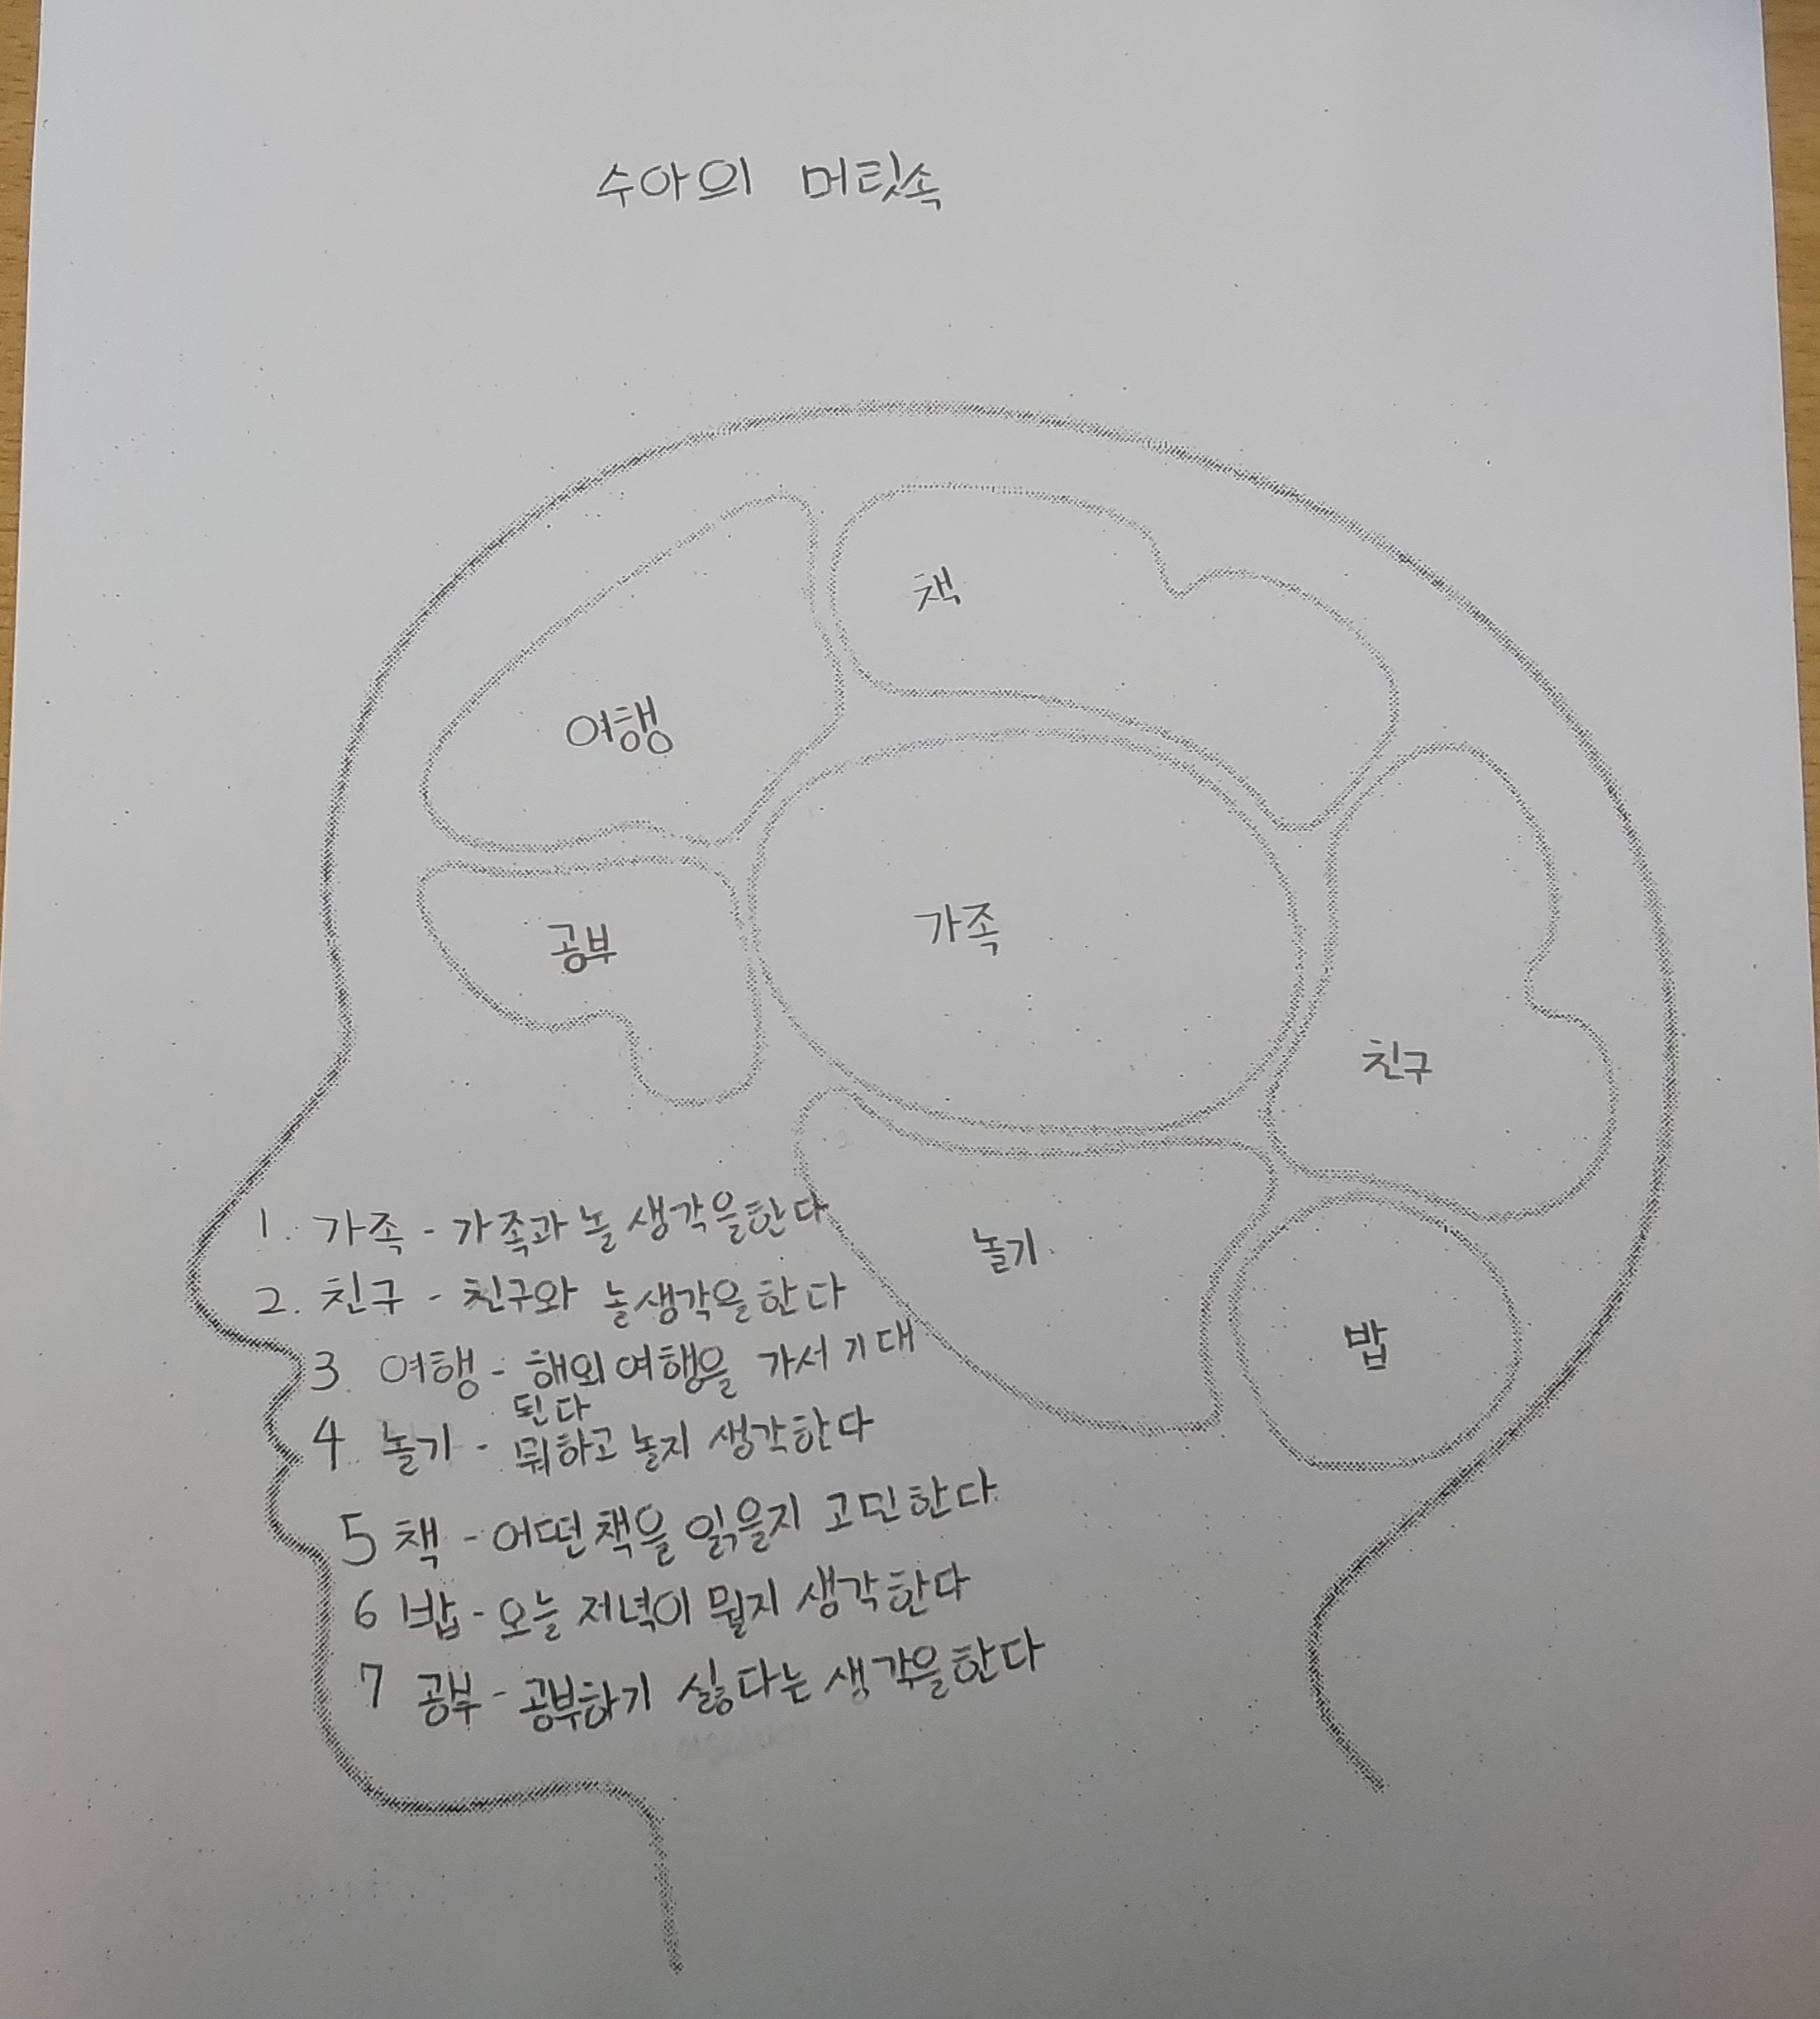 수아의 머릿속
책
여행
가족
공부
친구
놀기
밥
1. 가족 - 가족과 놀 생각을한다
2. 친구 - 친구와 놀생각을한다
3. 여행 - 해외여행을 가서 기대
된다
4. 놀기 - 뭐하고 놀지 생각한다
5 책 - 어떤책을 읽을지 고민한다
6 밥 - 오늘 저녁이 뭘지 생각한다
7 공부 - 공부하기 싫다는 생각을한다